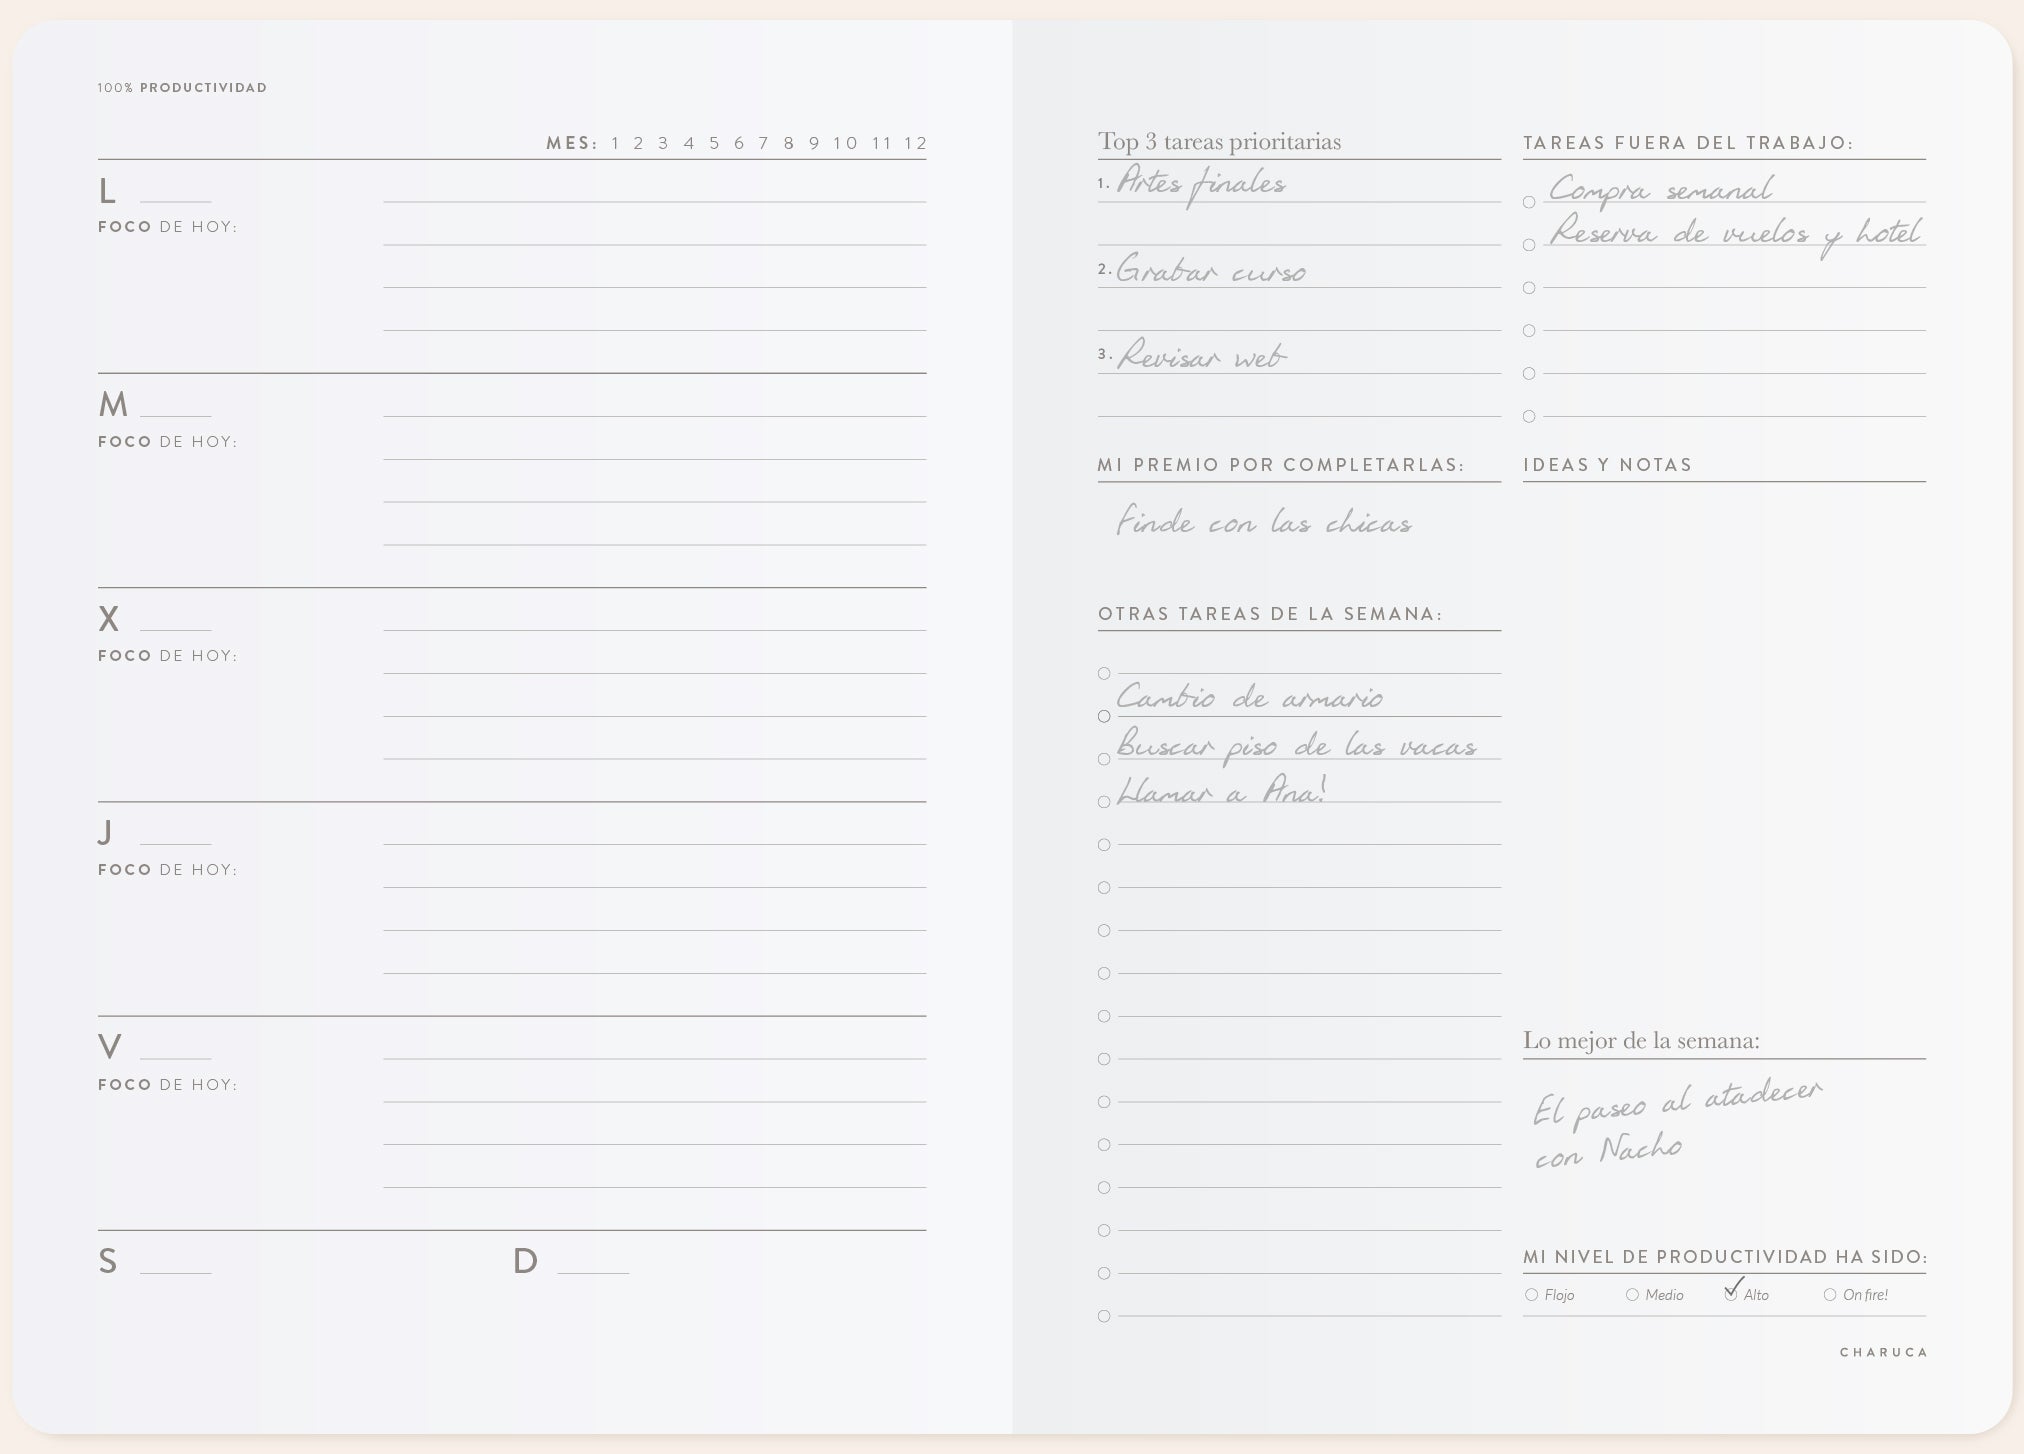 100% PRODUCTIVIDAD
MES: 1 2 3 4 5 6 7 8 9 10 11 12
L
FOCO DE HOY:
M
FOCO DE HOY:
X
FOCO DE HOY:
J
FOCO DE HOY:
V
FOCO DE HOY:
S
D
Top 3 tareas prioritarias
1. Artes finales
2. Grabar curso
3. Revisar web
MI PREMIO POR COMPLETARLAS:
Finde con las chicas
OTRAS TAREAS DE LA SEMANA:
Cambio de armario
Buscar piso de las vacas
Llamar a Ana!
TAREAS FUERA DEL TRABAJO:
Compra semanal
Reserva de vuelos y hotel
IDEAS Y NOTAS
Lo mejor de la semana:
El paseo al atadecer
con Nacho
MI NIVEL DE PRODUCTIVIDAD HA SIDO:
Flojo Medio Alto On fire!
CHARUCA